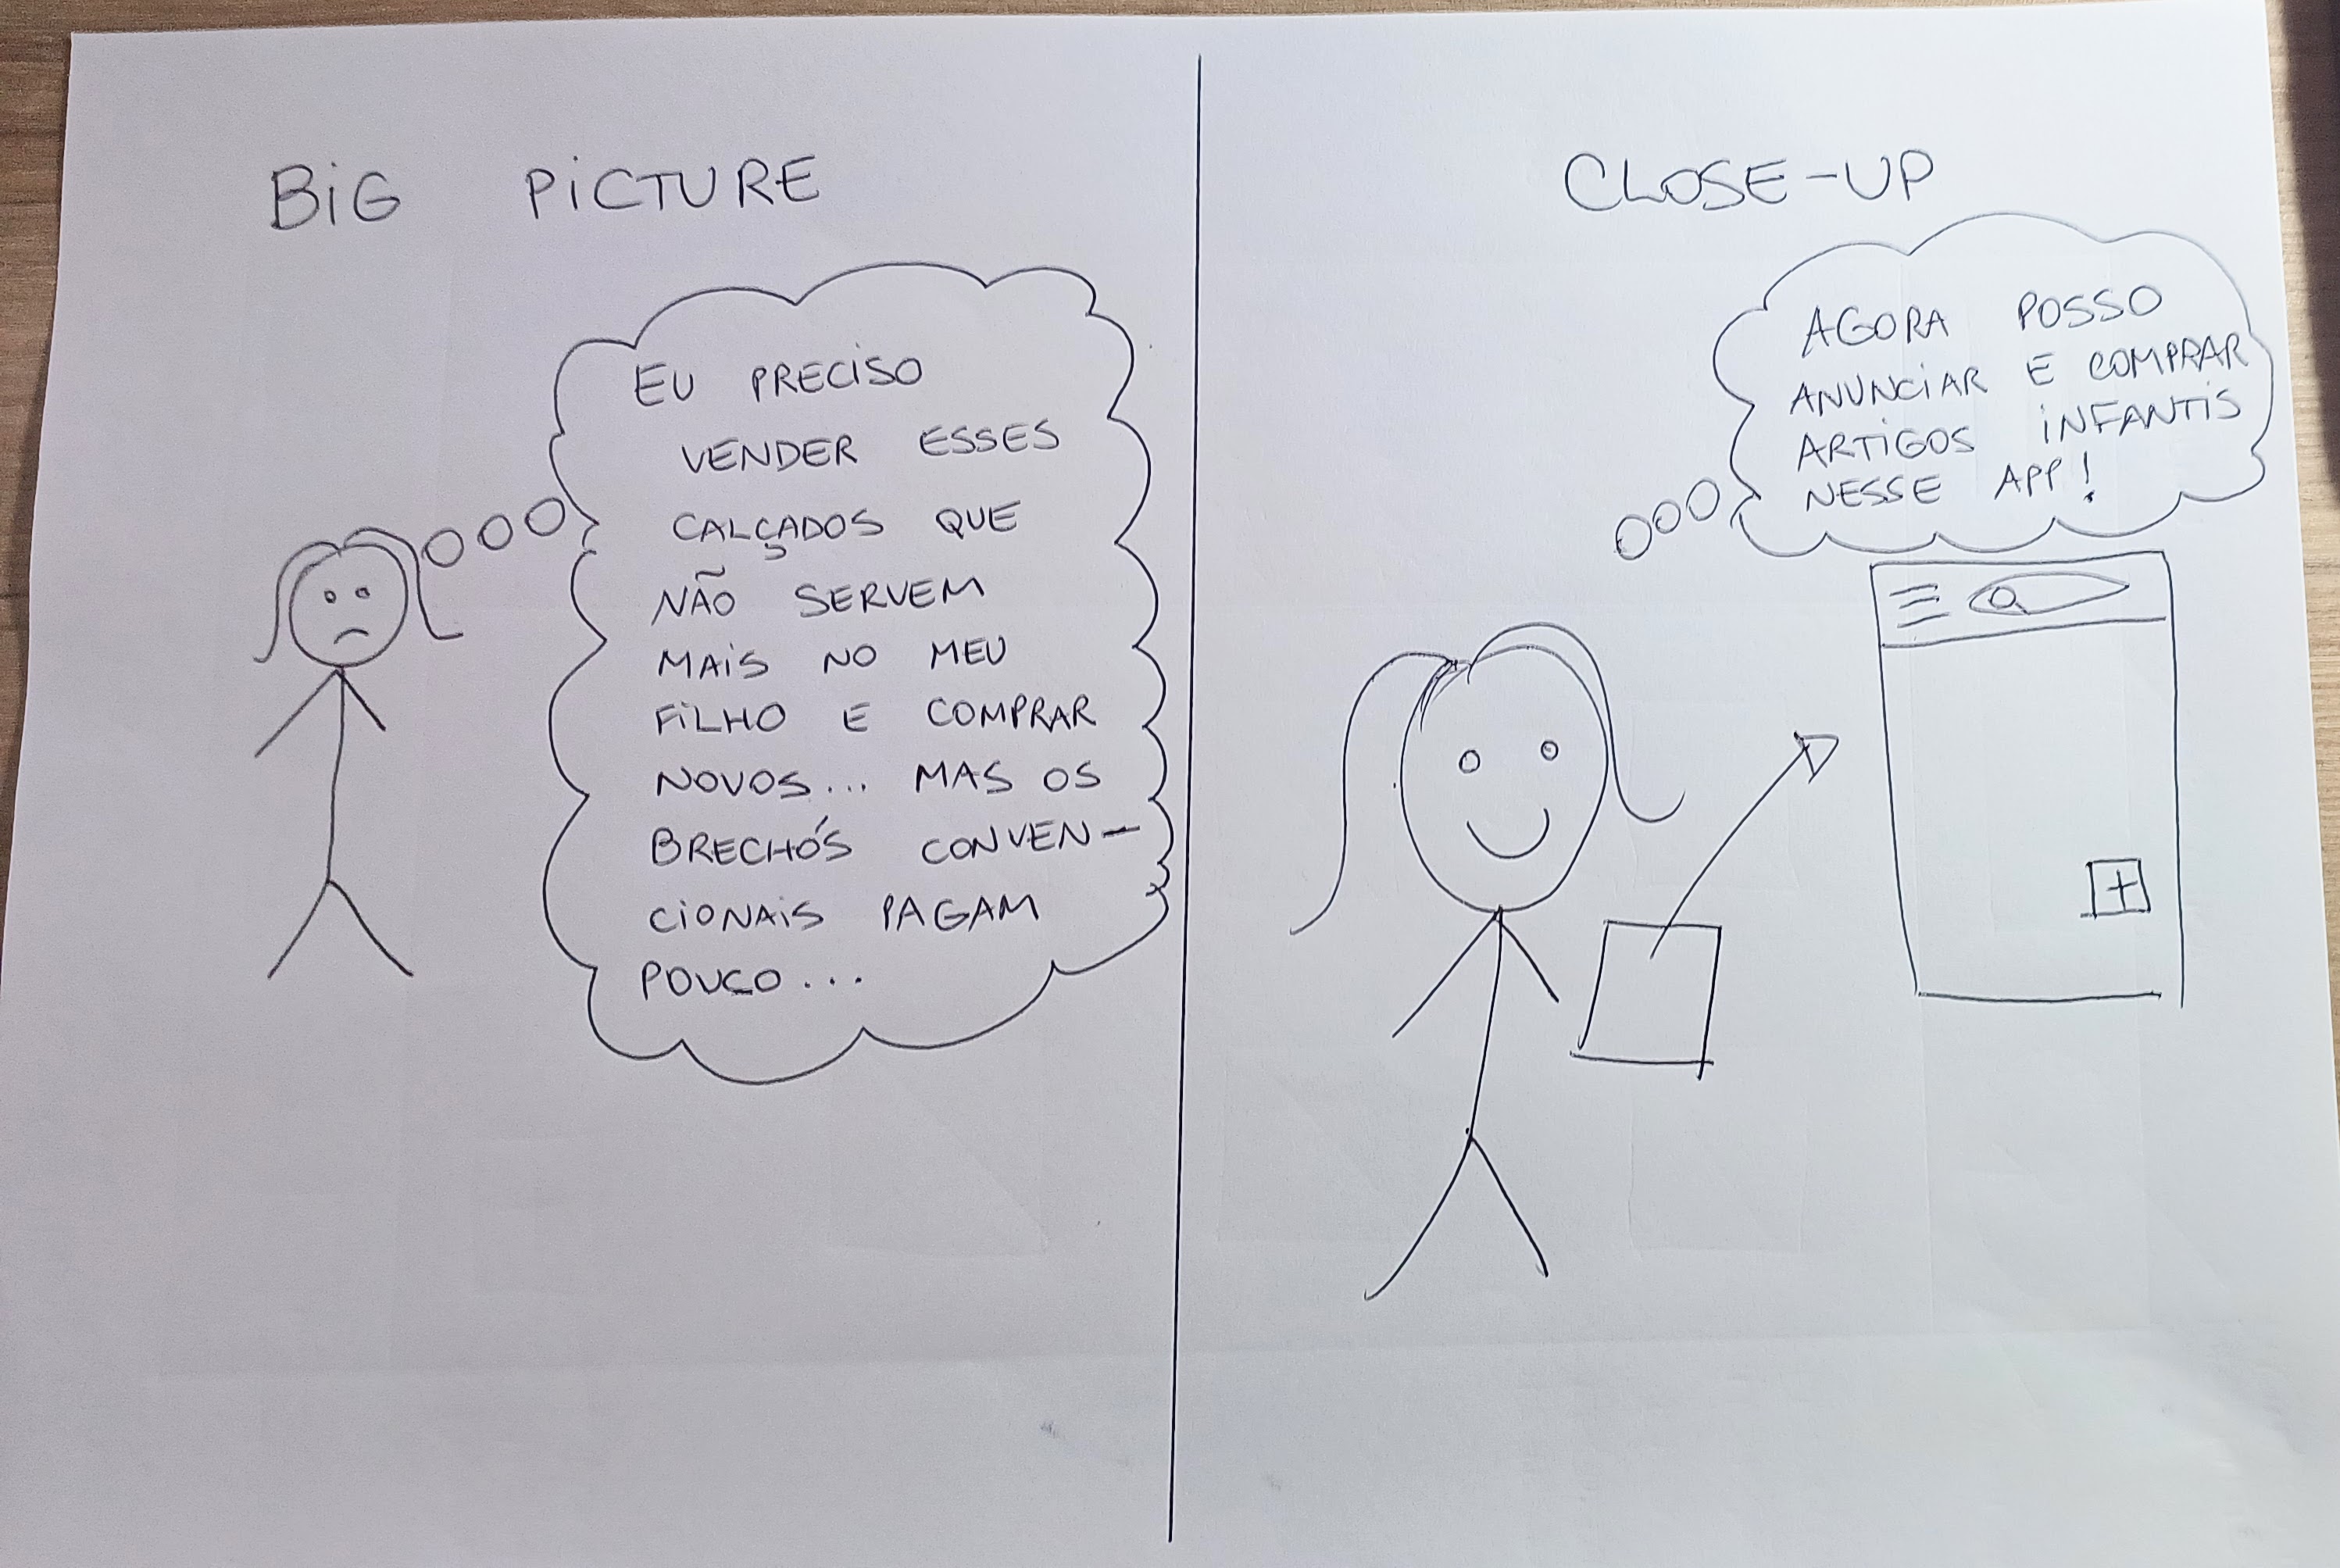 BIG PICTURE
EU PRECISO
VENDER ESSES
CALÇADOS QUE
NÃO SERVEM
MAIS NO MEU
FILHO E COMPRAR
NOVOS... MAS OS
BRECHÓS CONVEN-
CIONAIS PAGAM
POUCO...
CLOSE-UP
AGORA POSSO
ANUNCIAR E COMPRAR
ARTIGOS INFANTIS
NESSE APP!